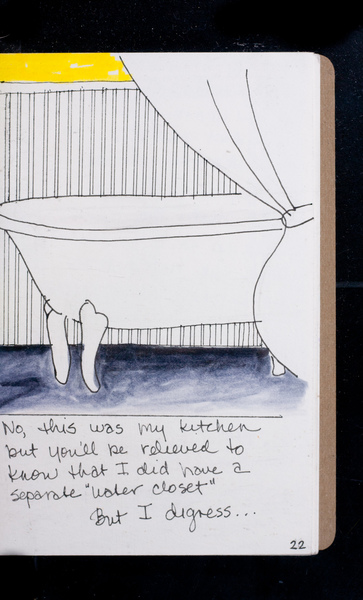 No, this was my kitchen
but you'll be relieved to
know that I did have a
separate "water closet"
But I digress...
22